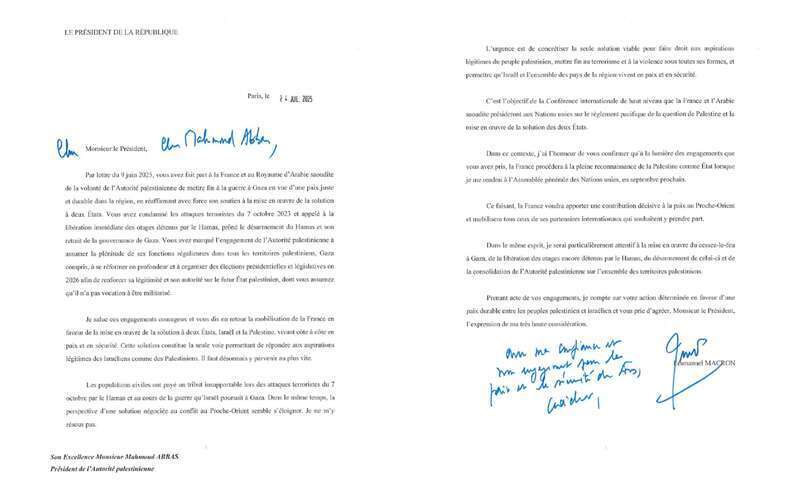 LE PRÉSIDENT DE LA RÉPUBLIQUE
Paris, le 24 JUIL. 2025
Cher Monsieur le Président, Cher Mahmoud Abbas,
Par lettre du 9 juin 2025, vous avez fait part à la France et au Royaume d'Arabie saoudite
de la volonté de l'Autorité palestinienne de mettre fin à la guerre à Gaza en vue d'une paix juste
et durable dans la région, en réaffirmant avec force son soutien à la mise en œuvre de la solution
à deux États. Vous avez condamné les attaques terroristes du 7 octobre 2023 et appelé à la
libération immédiate des otages détenus par le Hamas, prôné le désarmement du Hamas et son
retrait de la gouvernance de Gaza. Vous avez marqué l'engagement de l'Autorité palestinienne à
assumer la plénitude de ses fonctions régaliennes dans tous les territoires palestiniens, Gaza
compris, à se réformer en profondeur et à organiser des élections présidentielles et législatives en
2026 afin de renforcer sa légitimité et son autorité sur le futur État palestinien, dont vous assurez
qu'il n'a pas vocation à être militarisé.
Je salue ces engagements courageux et vous dis en retour la mobilisation de la France en
faveur de la mise en œuvre de la solution à deux États, Israël et la Palestine, vivant côte à côte en
paix et en sécurité. Cette solution constitue la seule voie permettant de répondre aux aspirations
légitimes des Israéliens comme des Palestiniens. Il faut désormais y parvenir au plus vite.
Les populations civiles ont payé un tribut insupportable lors des attaques terroristes du 7
octobre par le Hamas et au cours de la guerre qu'Israël poursuit à Gaza. Dans le même temps, la
perspective d'une solution négociée au conflit au Proche-Orient semble s'éloigner. Je ne m'y
résous pas.
Son Excellence Monsieur Mahmoud ABBAS
Président de l'Autorité palestinienne
L'urgence est de concrétiser la seule solution viable pour faire droit aux aspirations
légitimes du peuple palestinien, mettre fin au terrorisme et à la violence sous toutes ses formes, et
permettre qu'Israël et l'ensemble des pays de la région vivent en paix et en sécurité.
C'est l'objectif de la Conférence internationale de haut niveau que la France et l'Arabie
saoudite présideront aux Nations unies sur le règlement pacifique de la question de Palestine et la
mise en œuvre de la solution des deux États.
Dans ce contexte, j'ai l'honneur de vous confirmer qu'à la lumière des engagements que
vous avez pris, la France procédera à la pleine reconnaissance de la Palestine comme État lorsque
je me rendrai à l'Assemblée générale des Nations unies, en septembre prochain.
Ce faisant, la France voudra apporter une contribution décisive à la paix au Proche-Orient
et mobilisera tous ceux de ses partenaires internationaux qui souhaitent y prendre part.
Dans le même esprit, je serai particulièrement attentif à la mise en œuvre du cessez-le-feu
à Gaza, de la libération des otages encore détenus par le Hamas, du désarmement de celui-ci et de
la consolidation de l'Autorité palestinienne sur l'ensemble des territoires palestiniens.
Prenant acte de vos engagements, je compte sur votre action déterminée en faveur d'une
paix durable entre les peuples palestinien et israélien et vous prie d'agréer, Monsieur le Président,
l'expression de ma très haute considération.
avec ma confiance et
mon engagement pour la
paix et la sécurité de tous,
Emmanuel MACRON